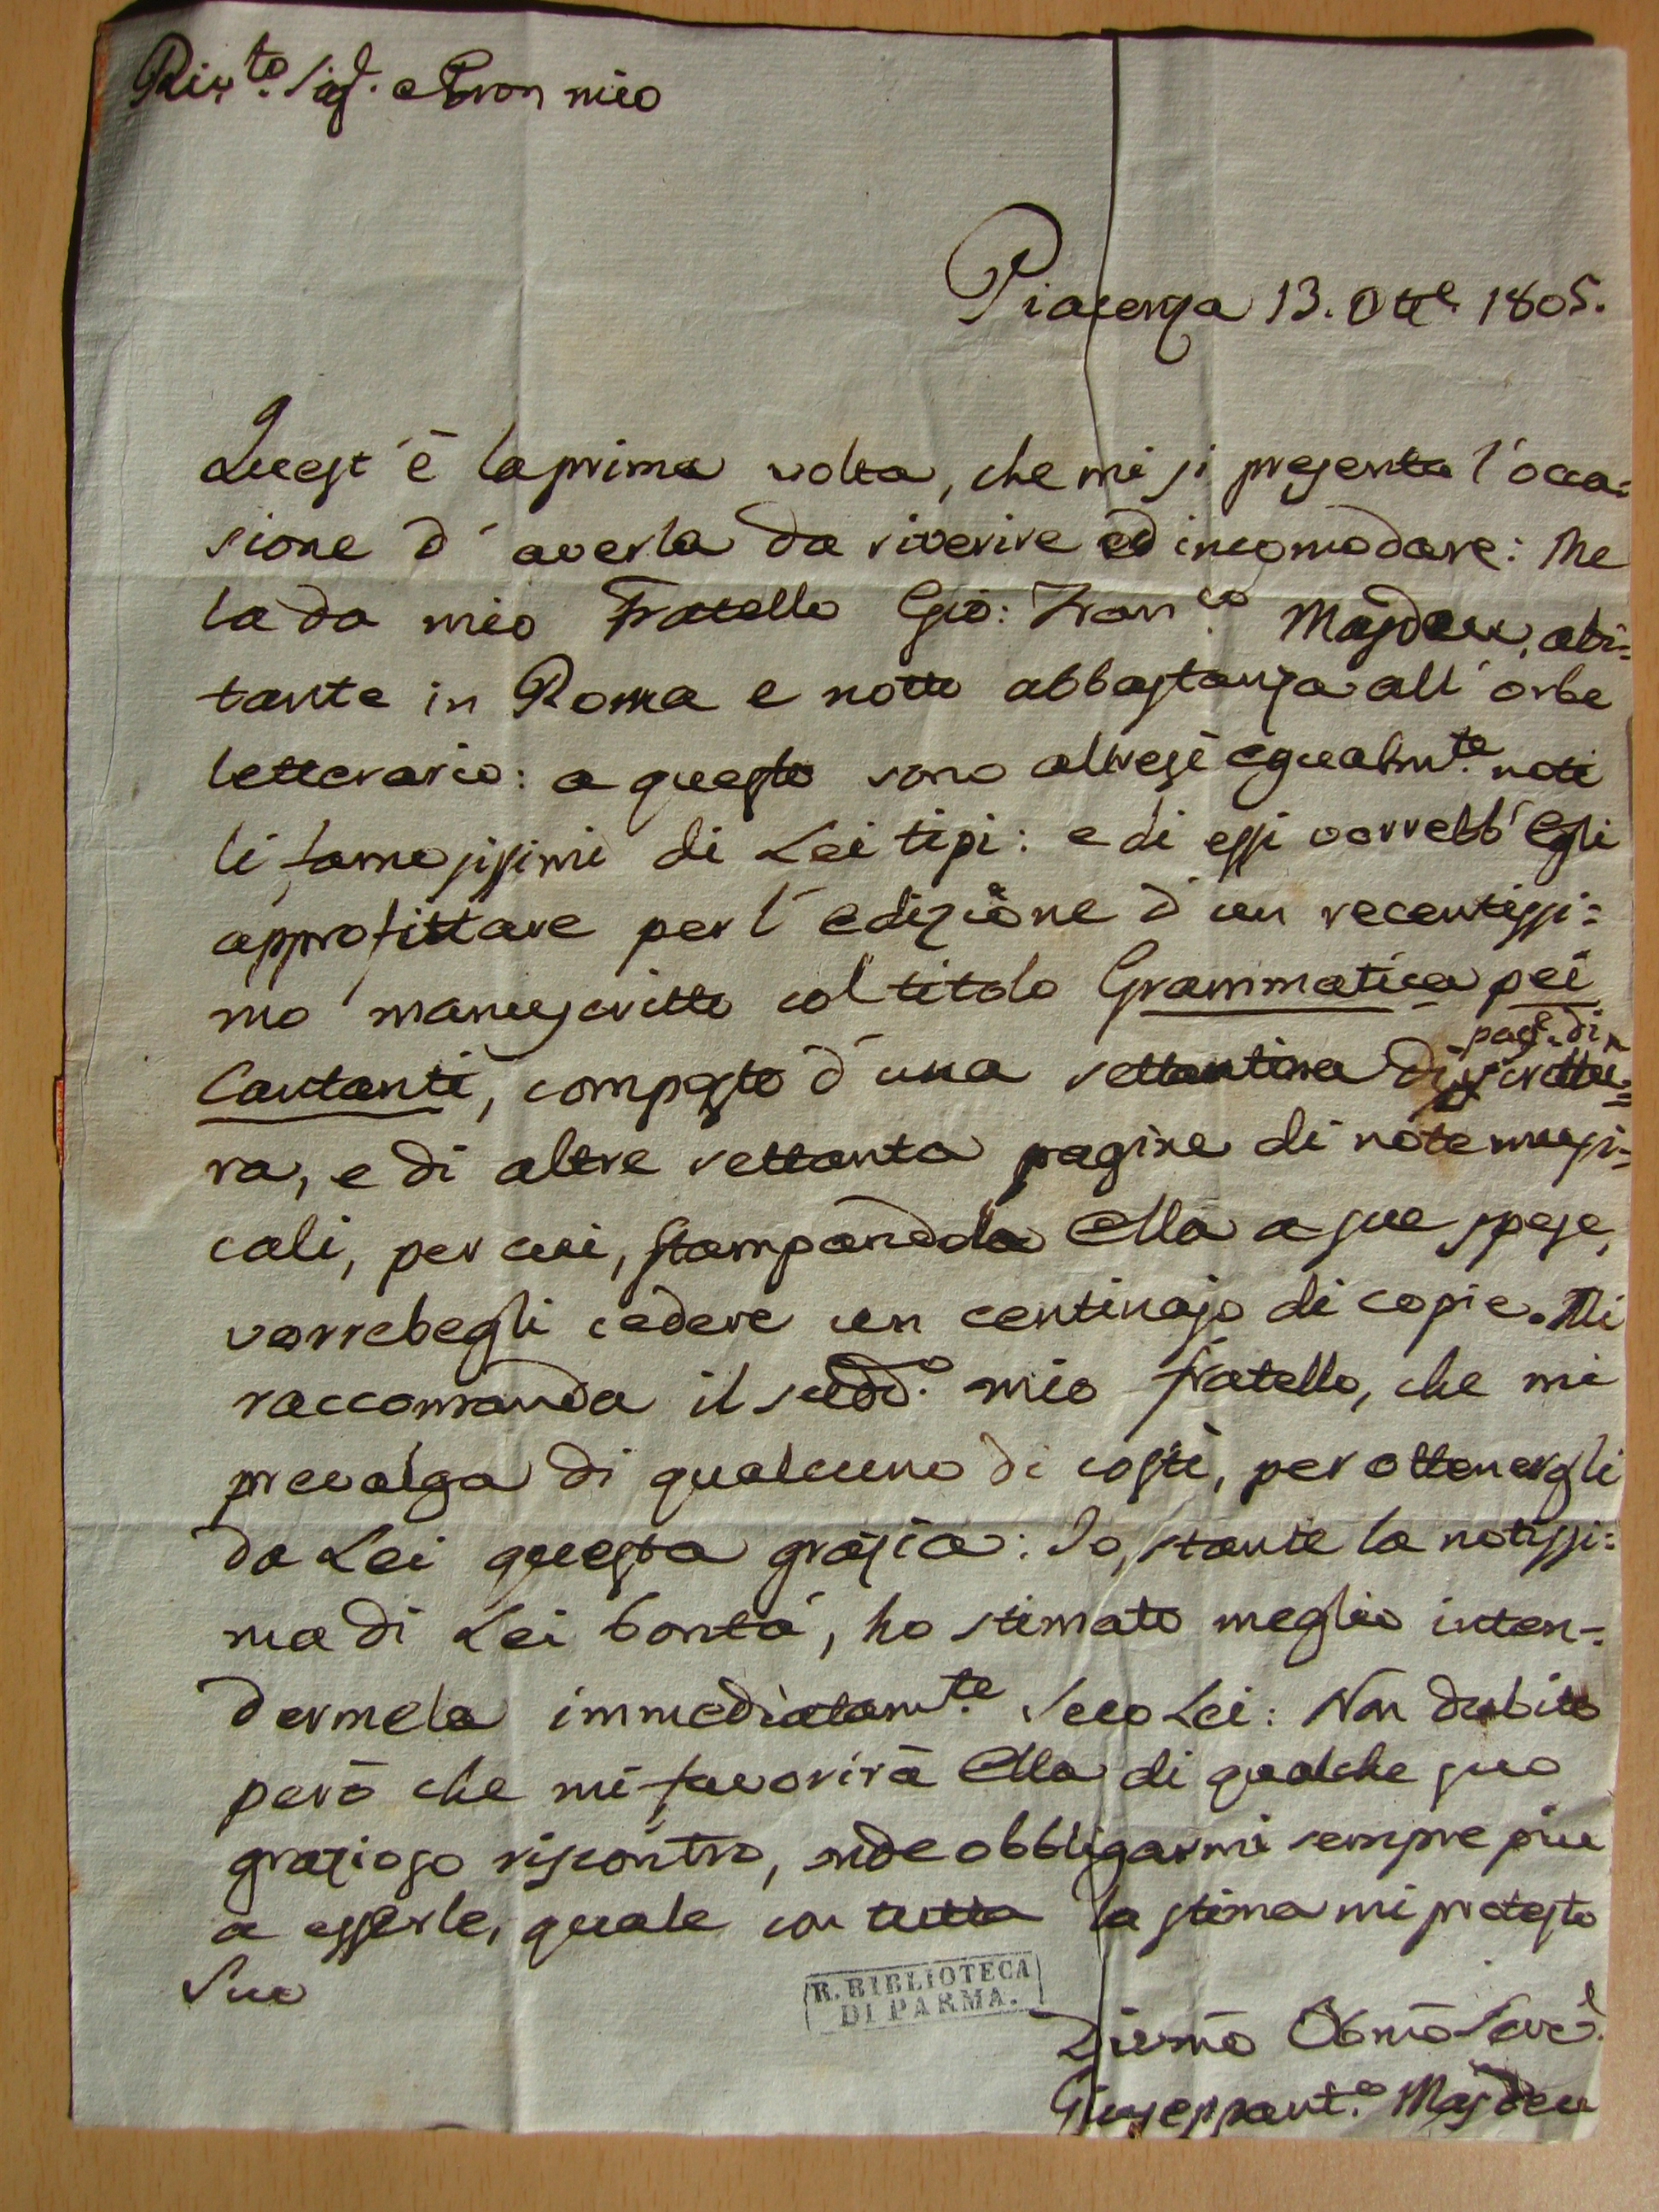 Riv.to Sig.r e Pron mio
Piacenza 13. Ott.e 1805.
Quest'è la prima volta, che mi si presenta l'occa-
sione d'averla da riverire ed incomodare: Me
la da mio Fratello Gio: Fran.co Masdeu, abi-
tante in Roma e notto abbastanza all'orbe
letterario: a questo sono altresì egualm.te noti
li famosissimi di Lei tipi: e di essi vorrebb'Egli
approfittare per l'edizione d'un recentissi-
mo manuscritto col titolo Grammatica pei
pag. di
Cantanti, composto d'una settantina di scrittu-
ra, e di altre settanta pagine di note musi-
cali, per cui, stampandola Ella a sue spese,
vorrebegli cedere un centinajo di copie. Mi
raccomanda il sudd.o mio fratello, che mi
prevalga di qualcuno di costì, per ottenergli
da Lei questa grazia: Io, stante la notissi-
ma di Lei bontà, ho stimato meglio inten-
dermela immediatam.te seco Lei: Non dubito
però che mi favorirà Ella di qualche suo
grazioso riscontro, onde obbligarmi sempre piu
a esserle, quale con tutta la stima mi protesto
Suo
R. BIBLIOTECA
DI PARMA.
Divmo Obmo Serv.
Giuseppant.o Masdeu